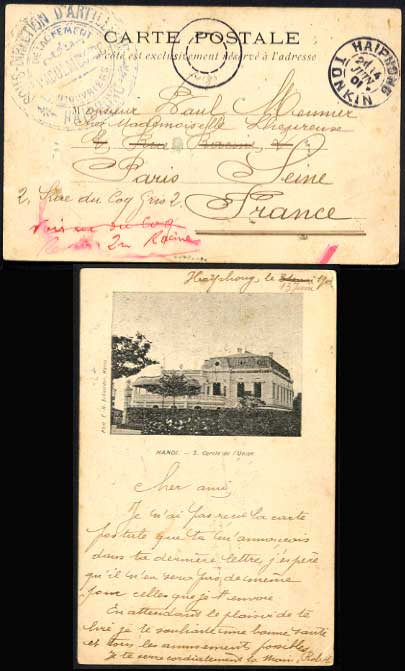 CARTE POSTALE
Ce côté est exclusivement réservé à l'adresse
SOUS-DIRECTION D'ARTILLERIE
DÉTACHEMENT
D'OUVRIERS
HAIPHONG
TONKIN
Monsieur Paul Meunier
chez Mademoiselle
Paris Seine
2, Rue du Coq Gris 2,
France
Haïphong, le
13 Juin
HANOI. — 5. Cercle de l'Union
Cher ami
Je n'ai pas reçu la carte
postale que tu m'annonçais
dans ta dernière lettre, j'espère
qu'il n'en sera pas de même
pour celles que je t'envoie
En attendant le plaisir de te
lire je te souhaite une bonne santé
et tous les amusements possibles
Je te serre cordialement la main,